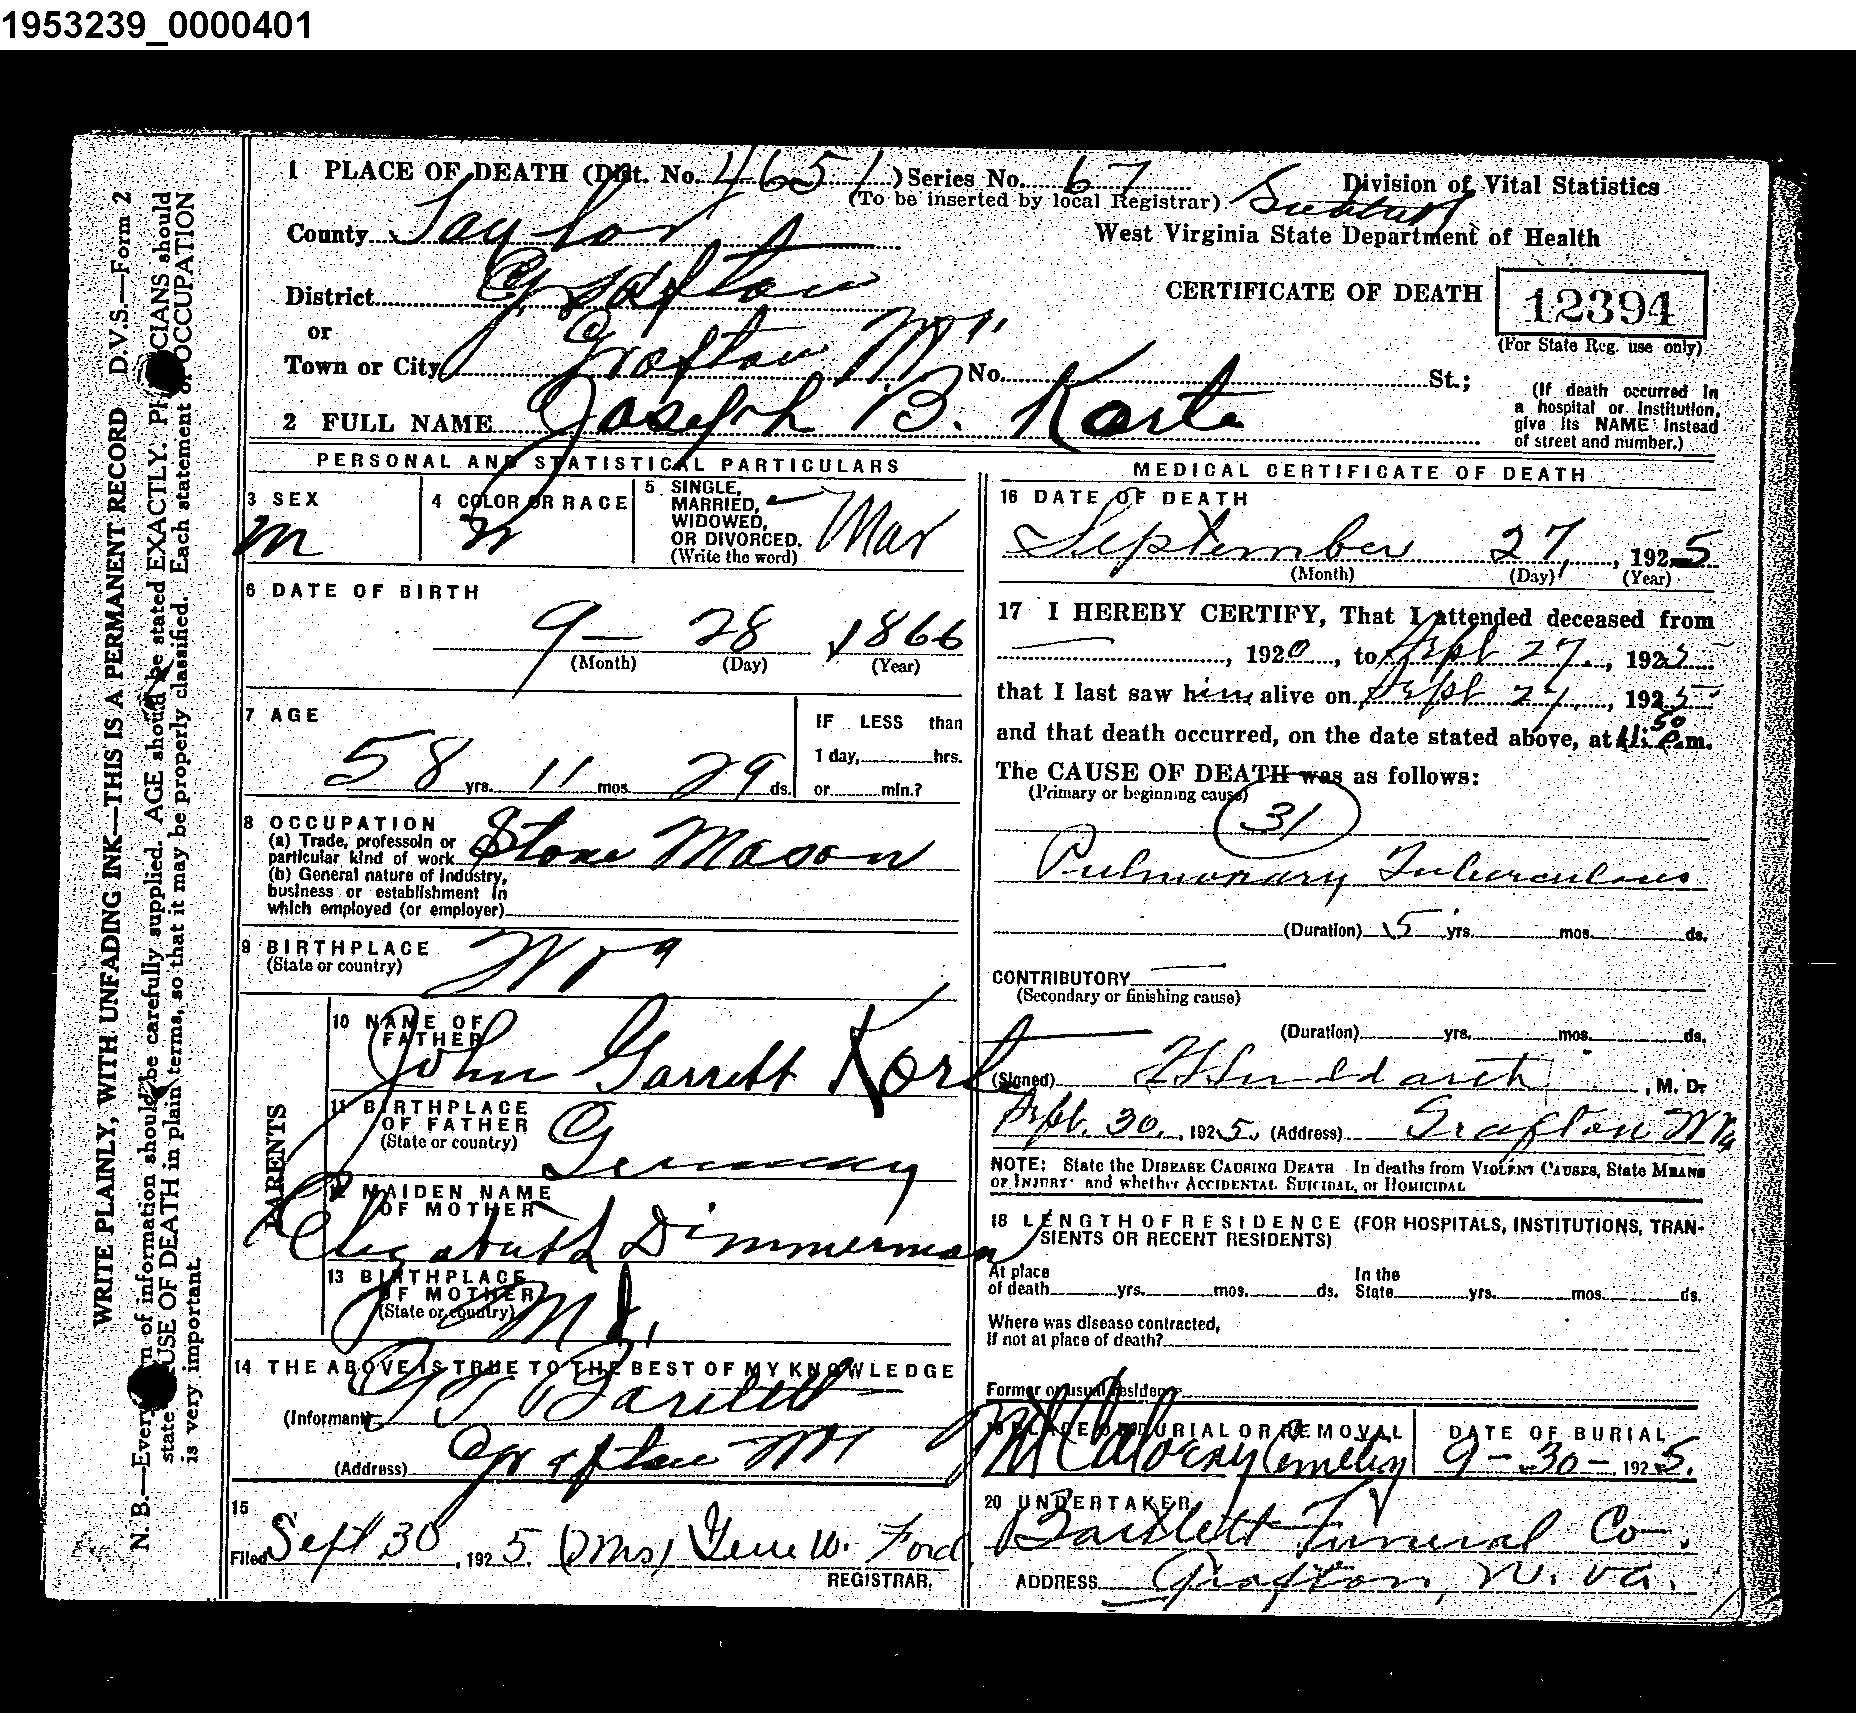 1953239_0000401
1 PLACE OF DEATH (Dist. No. 4651) Series No. 67 Division of Vital Statistics
(To be inserted by local Registrar)
County Taylor West Virginia State Department of Health
District Grafton CERTIFICATE OF DEATH 12394
or
Town or City Grafton No. St.; (For State Reg. use only)
(If death occurred in
a hospital or Institution,
give its NAME instead
of street and number.)
2 FULL NAME Joseph B. Korte
PERSONAL AND STATISTICAL PARTICULARS
3 SEX
M
4 COLOR OR RACE
W
5 SINGLE,
MARRIED,
WIDOWED,
OR DIVORCED.
(Write the word)
Mar
6 DATE OF BIRTH
9 - 28 1866
(Month) (Day) (Year)
7 AGE
58 yrs. 11 mos. 29 ds.
IF LESS than
1 day, hrs.
or min.?
8 OCCUPATION
(a) Trade, professoin or
particular kind of work Stone Mason
(b) General nature of Industry,
business or establishment in
which employed (or employer)
9 BIRTHPLACE
(State or country) W Va
PARENTS
10 NAME OF
FATHER
John Garrett Kort
11 BIRTHPLACE
OF FATHER
(State or country) Germany
12 MAIDEN NAME
OF MOTHER
Elizabeth Dimmerman
13 BIRTHPLACE
OF MOTHER
(State or country) Md.
14 THE ABOVE IS TRUE TO THE BEST OF MY KNOWLEDGE
(Informant) Bartlett
(Address) Grafton
15
Filed Sept 30, 1925. (Mrs) W. Ford
REGISTRAR.
MEDICAL CERTIFICATE OF DEATH
16 DATE OF DEATH
September 27, 1925
(Month) (Day) (Year)
17 I HEREBY CERTIFY, That I attended deceased from
, 1920, to Sept 27, 1925
that I last saw him alive on Sept 27, 1925
and that death occurred, on the date stated above, at 11:50 P.m.
The CAUSE OF DEATH was as follows:
(Primary or beginning cause)
31
Pulmonary Tuberculosis
(Duration) 5 yrs. mos. ds.
CONTRIBUTORY
(Secondary or finishing cause)
(Duration) yrs. mos. ds.
(Signed) , M. D.
Sept. 30, 1925. (Address) Grafton W Va
NOTE: State the DISEASE CAUSING DEATH In deaths from VIOLENT CAUSES, State MEANS
OF INJURY and whether ACCIDENTAL SUICIDAL, or HOMICIDAL
18 LENGTH OF RESIDENCE (FOR HOSPITALS, INSTITUTIONS, TRAN-
SIENTS OR RECENT RESIDENTS)
At place
of death yrs. mos. ds. In the
State yrs. mos. ds.
Where was disease contracted,
If not at place of death?
Former or usual residence
19 PLACE OF BURIAL OR REMOVAL
Mt Calvary Cemetery
DATE OF BURIAL
9 - 30 - 1925.
20 UNDERTAKER
Bartlett Funeral Co.
ADDRESS Grafton, W. Va.
WRITE PLAINLY, WITH UNFADING INK—THIS IS A PERMANENT RECORD D.V.S.—Form 2
N. B.—Every item of information should be carefully supplied. AGE should be stated EXACTLY. PHYSICIANS should
state CAUSE OF DEATH in plain terms, so that it may be properly classified. Each statement of OCCUPATION
is very important.